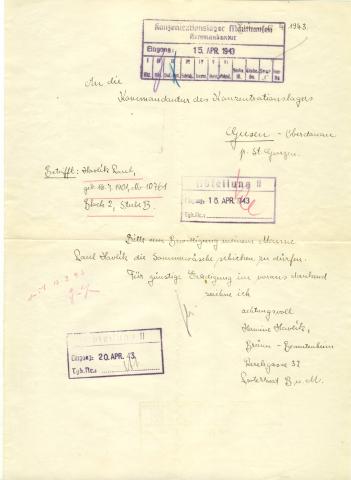 4. 1943.
Konzentrationslager Mauthausen
Kommandantur
Eingang: 15. APR. 1943
An die
Kommandantur des Konzentrationslagers
Gusen - Oberdonau
p. St. Georgen.
Betrifft: Havlik Paul,
geb. 1901, No 10761
Block 2, Stube B.
Abteilung II
Eingang: 16. APR. 1943
Tgb.Nr.:
Bitte um Bewilligung meinem Manne
Paul Havlik die Sommerwäsche schicken zu dürfen.
Für günstige Erledigung im voraus dankend
zeichne ich
achtungsvoll
Hermine Havlik,
Brünn -
37
Protektorat B. u. M.
Abteilung II
Eingang: 20. APR. 43.
Tgb.Nr.: